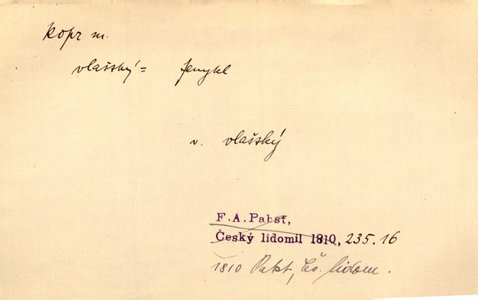 kopr m.
vlašský = fenykl
v. vlašský
F. A. Pabst,
Český lidomil 1810, 235.16
1810 Pabst, Čs. lidom.